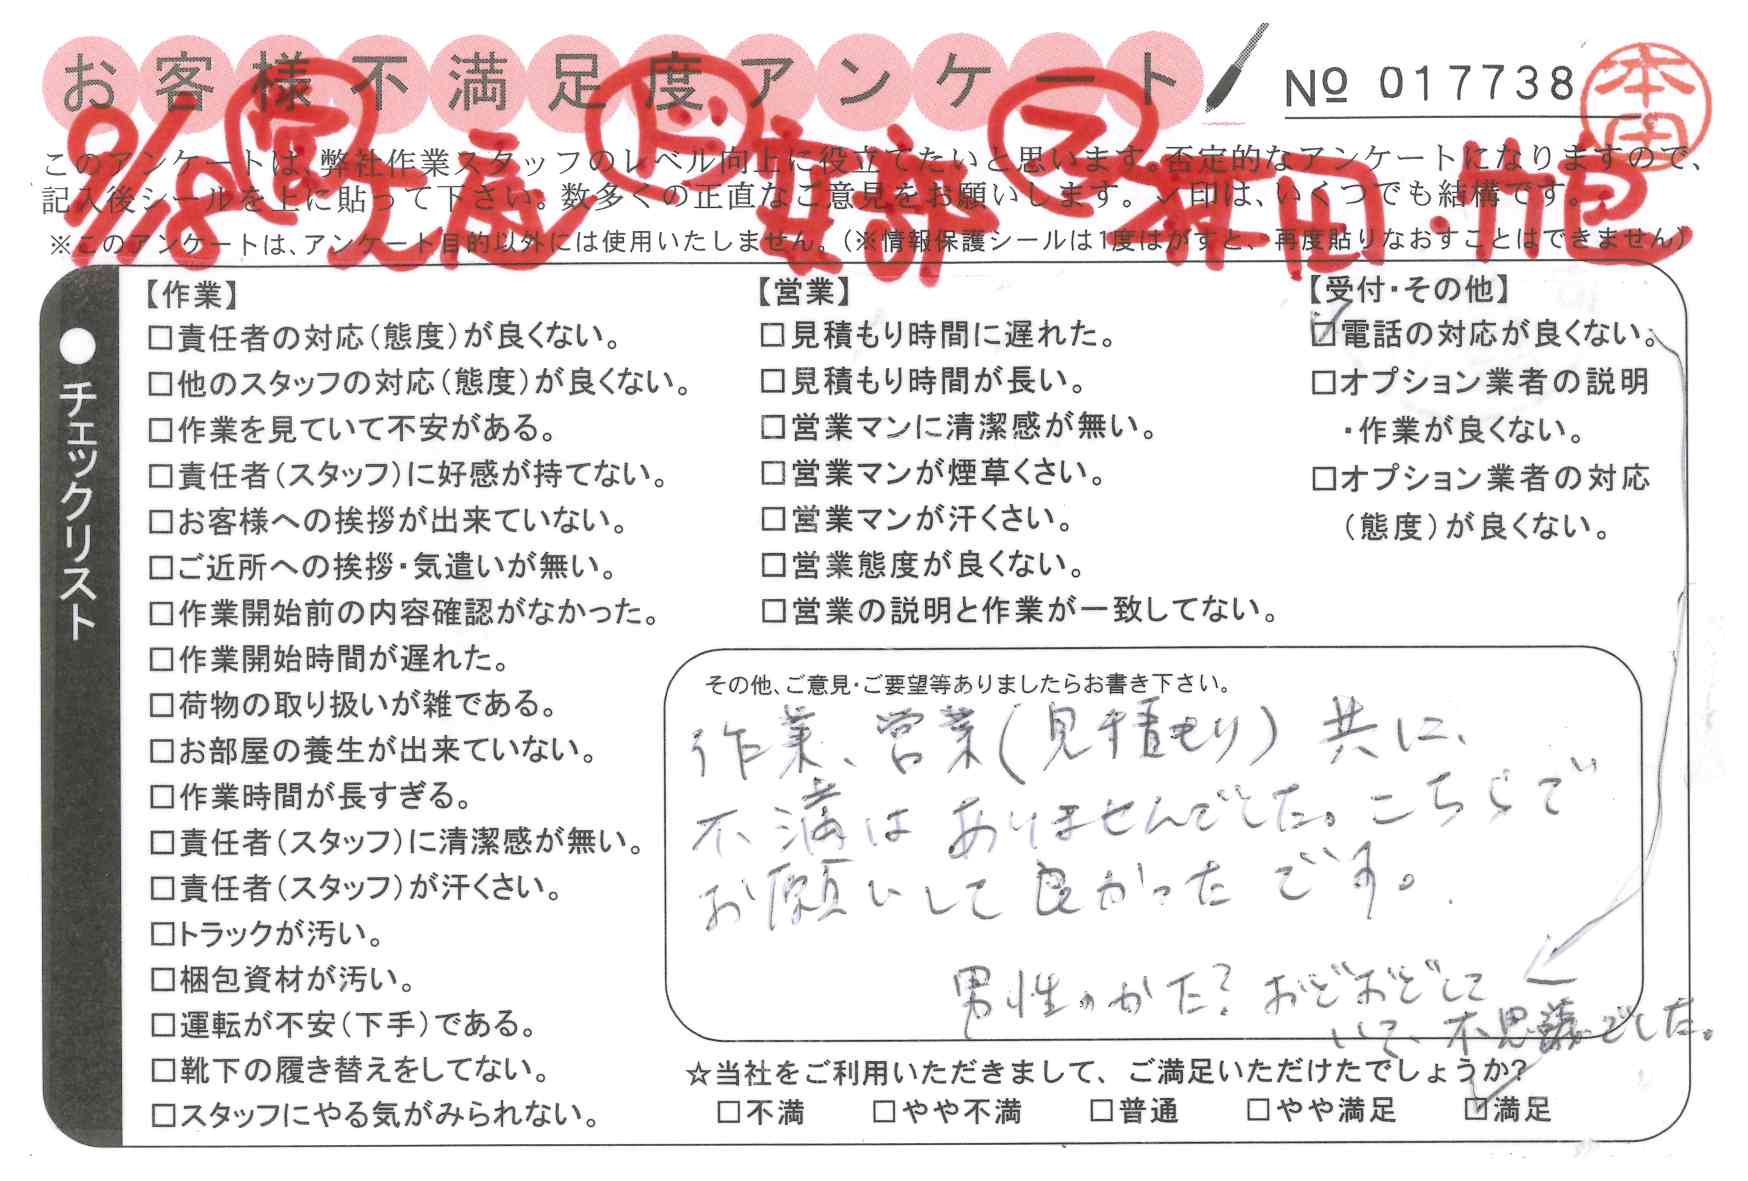 お客様不満足度アンケート
№ 017738
本田
9/18 営 大辰 ド 安部 ス 森田・竹邑
このアンケートは、弊社作業スタッフのレベル向上に役立てたいと思います。否定的なアンケートになりますので、
記入後シールを上に貼って下さい。数多くの正直なご意見をお願いします。✓印は、いくつでも結構です。
※このアンケートは、アンケート目的以外には使用いたしません。(※情報保護シールは1度はがすと、再度貼りなおすことはできません)
●チェックリスト
【作業】
□責任者の対応(態度)が良くない。
□他のスタッフの対応(態度)が良くない。
□作業を見ていて不安がある。
□責任者(スタッフ)に好感が持てない。
□お客様への挨拶が出来ていない。
□ご近所への挨拶・気遣いが無い。
□作業開始前の内容確認がなかった。
□作業開始時間が遅れた。
□荷物の取り扱いが雑である。
□お部屋の養生が出来ていない。
□作業時間が長すぎる。
□責任者(スタッフ)に清潔感が無い。
□責任者(スタッフ)が汗くさい。
□トラックが汚い。
□梱包資材が汚い。
□運転が不安(下手)である。
□靴下の履き替えをしてない。
□スタッフにやる気がみられない。
【営業】
□見積もり時間に遅れた。
□見積もり時間が長い。
□営業マンに清潔感が無い。
□営業マンが煙草くさい。
□営業マンが汗くさい。
□営業態度が良くない。
□営業の説明と作業が一致してない。
【受付・その他】
☑電話の対応が良くない。
□オプション業者の説明
・作業が良くない。
□オプション業者の対応
(態度)が良くない。
その他、ご意見・ご要望等ありましたらお書き下さい。
作業、営業(見積もり)共に、
不満はありませんでした。こちらで
お願いして良かったです。
男性のかた?おどおどして
いて、不思議でした。
☆当社をご利用いただきまして、ご満足いただけたでしょうか?
□不満 □やや不満 □普通 □やや満足 ☑満足